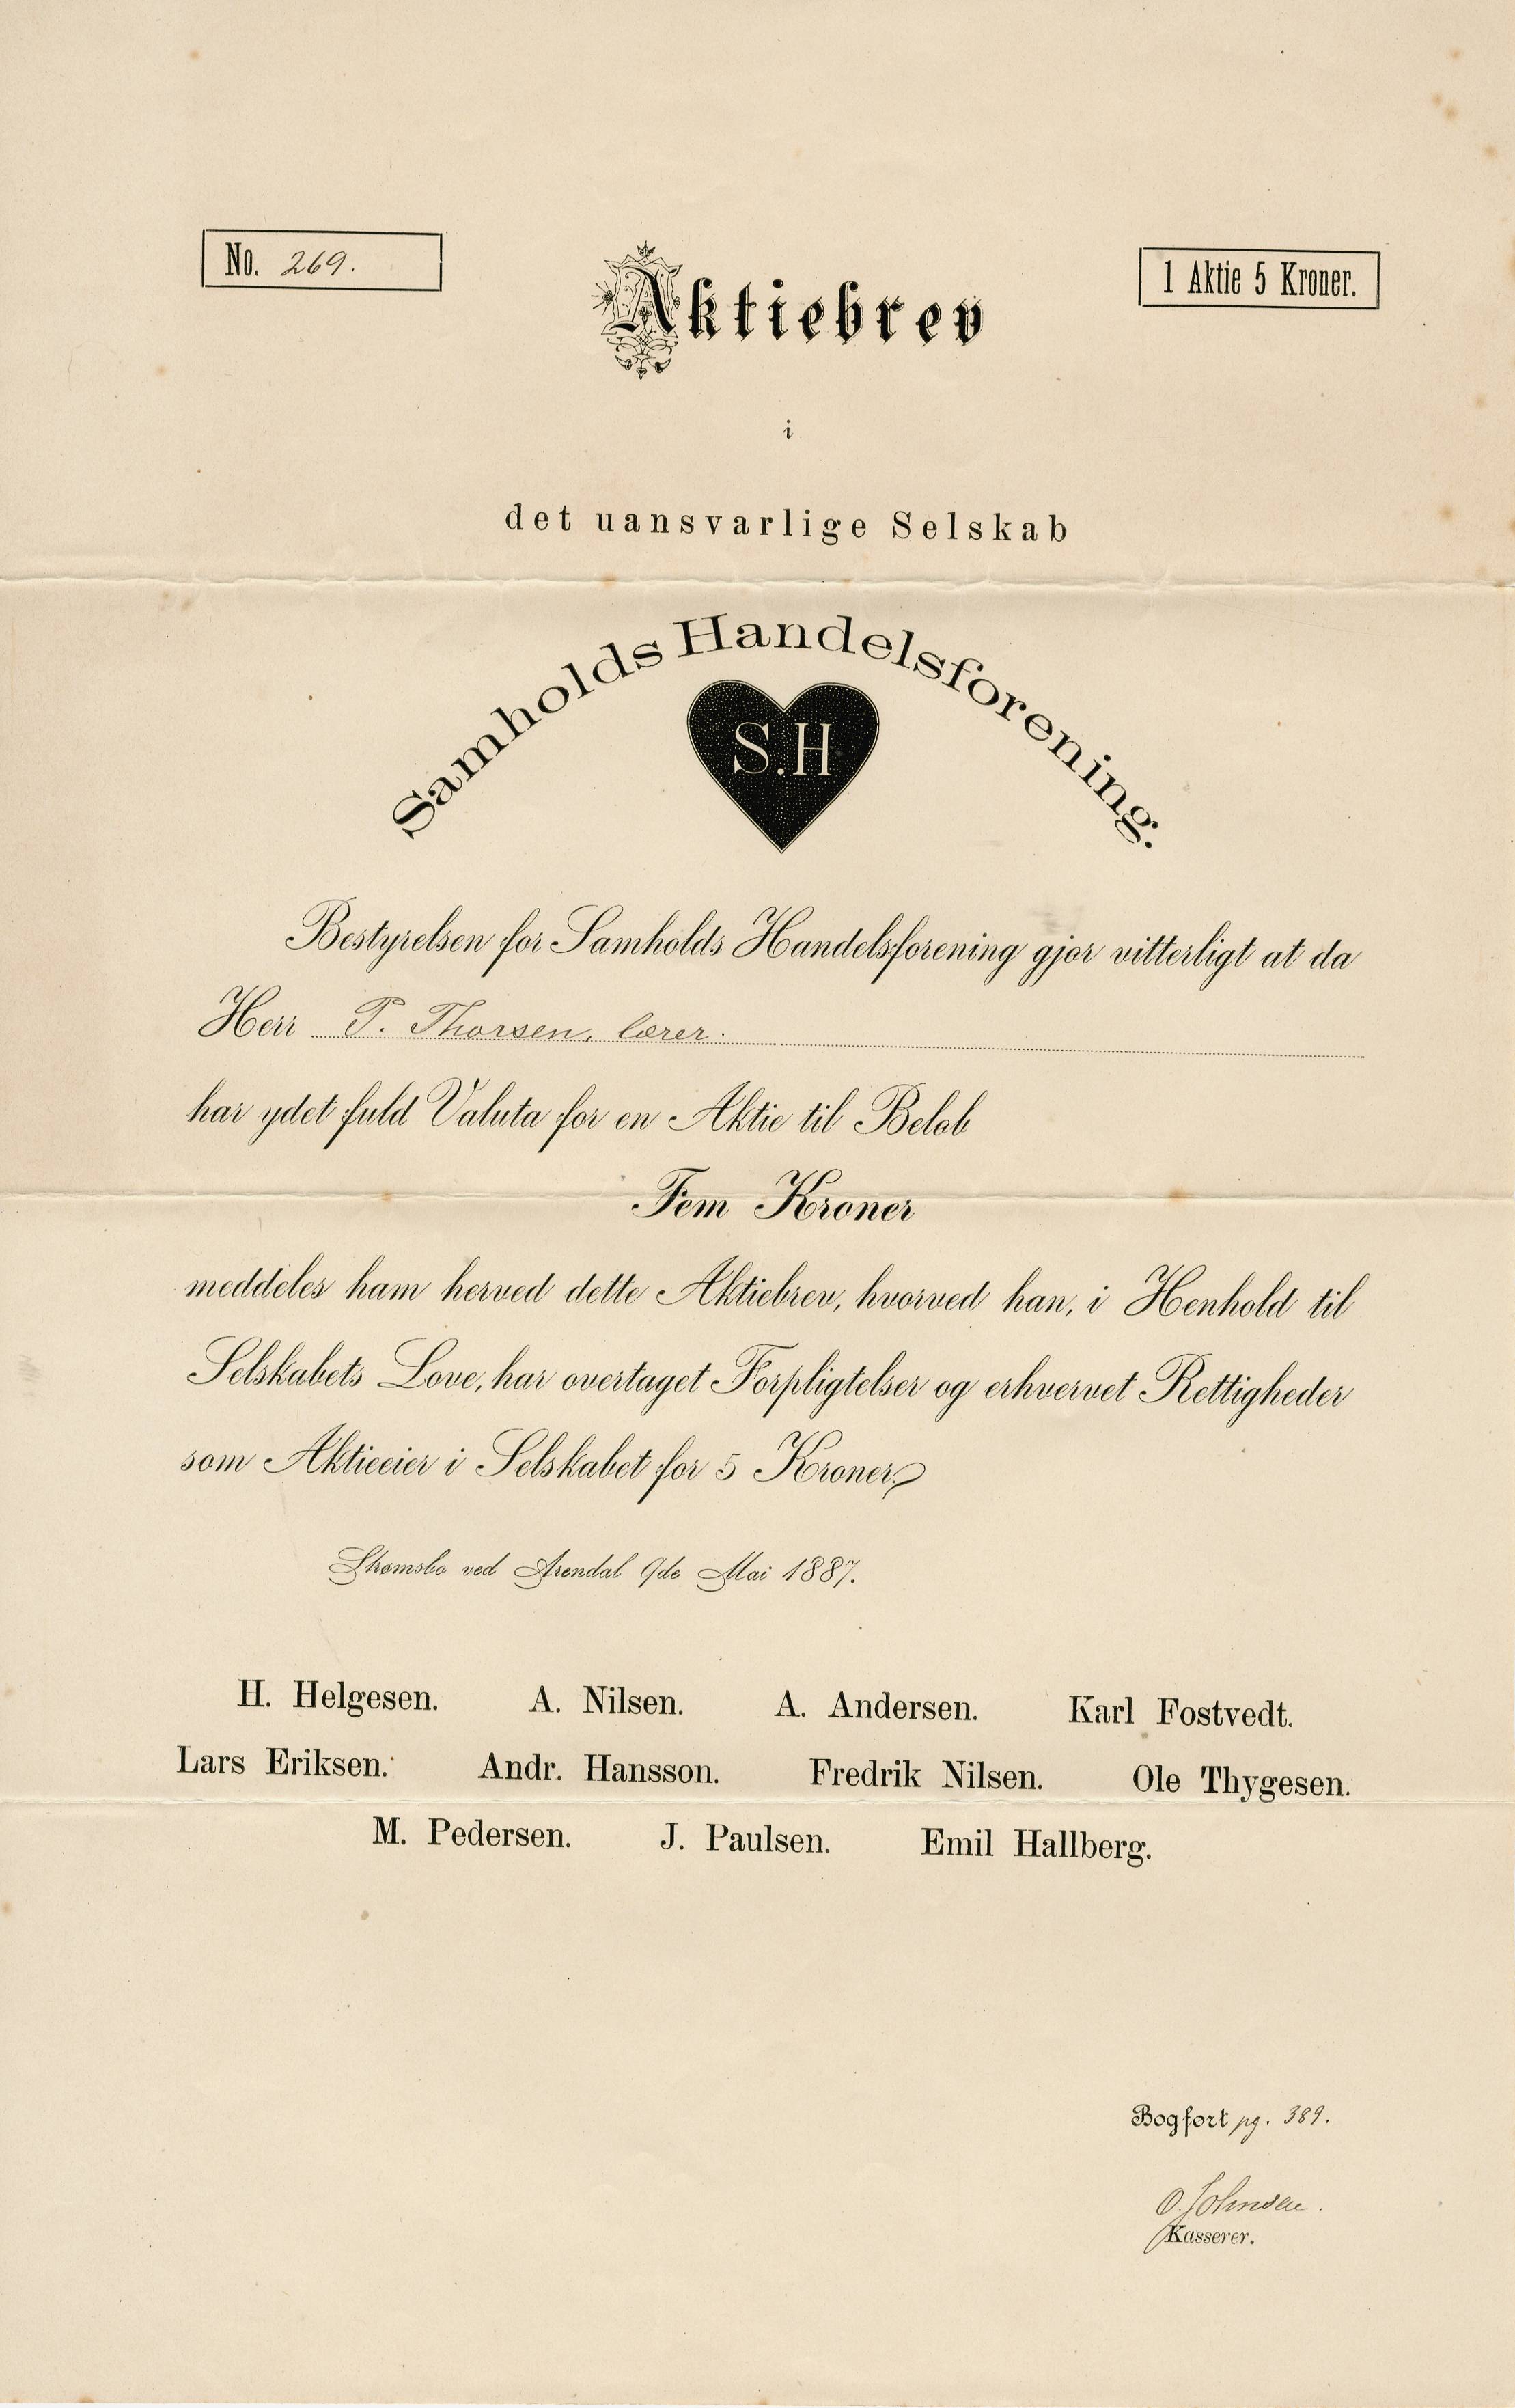 No. 269.
1 Aktie 5 Kroner.
Aktiebrev
i
det uansvarlige Selskab
Samholds Handelsforening.
S.H
Bestyrelsen for Samholds Handelsforening gjør vitterligt at da
Herr P. Thorsen, lærer.
har ydet fuld Valuta for en Aktie til Beløb
Fem Kroner
meddeles ham herved dette Aktiebrev, hvorved han, i Henhold til
Selskabets Love, har overtaget Forpligtelser og erhvervet Rettigheder
som Aktieeier i Selskabet for 5 Kroner.
Strømsbo ved Arendal 9de Mai 1887.
H. Helgesen. A. Nilsen. A. Andersen. Karl Fostvedt.
Lars Eriksen. Andr. Hansson. Fredrik Nilsen. Ole Thygesen.
M. Pedersen. J. Paulsen. Emil Hallberg.
Bogført pg. 389.
O. Johnsen.
Kasserer.